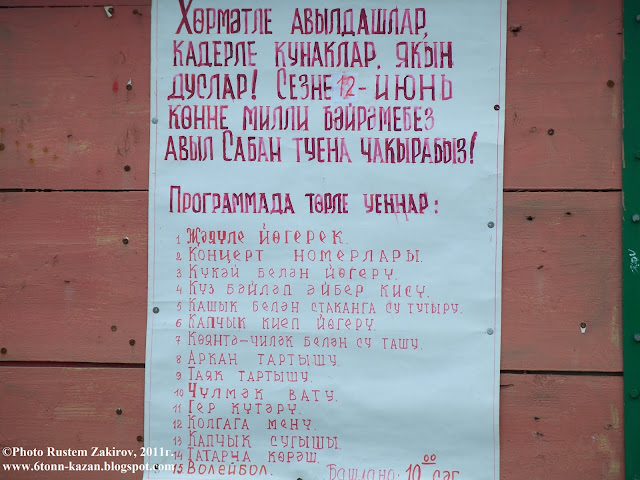 Хөрмәтле авылдашлар,
кадерле кунаклар, якын
дуслар! Сезне 12-июнь
көнне милли бәйрәмебез
авыл Сабан туена чакырабыз!
Программада төрле уеннар:
1 Җәяүле йөгерек.
2 Концерт номерлары.
3 Күкәй белән йөгерү.
4 Күз бәйләп әйбер кисү.
5 Кашык белән стаканга су тутыру.
6 Капчык киеп йөгерү.
7 Көянтә-чиләк белән су ташу.
8 Аркан тартышу.
9 Таяк тартышу.
10 Чүлмәк вату.
11 Гер күтәрү.
12 Колгага менү.
13 Капчык сугышы.
14 Татарча көрәш.
15 Волейбол. Башлана: 10 00 сәг.
©Photo Rustem Zakirov, 2011г.
www.6tonn-kazan.blogspot.com